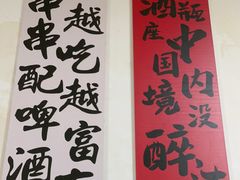 串串配啤酒
越吃越富
酒座国境醉
瓶中内没